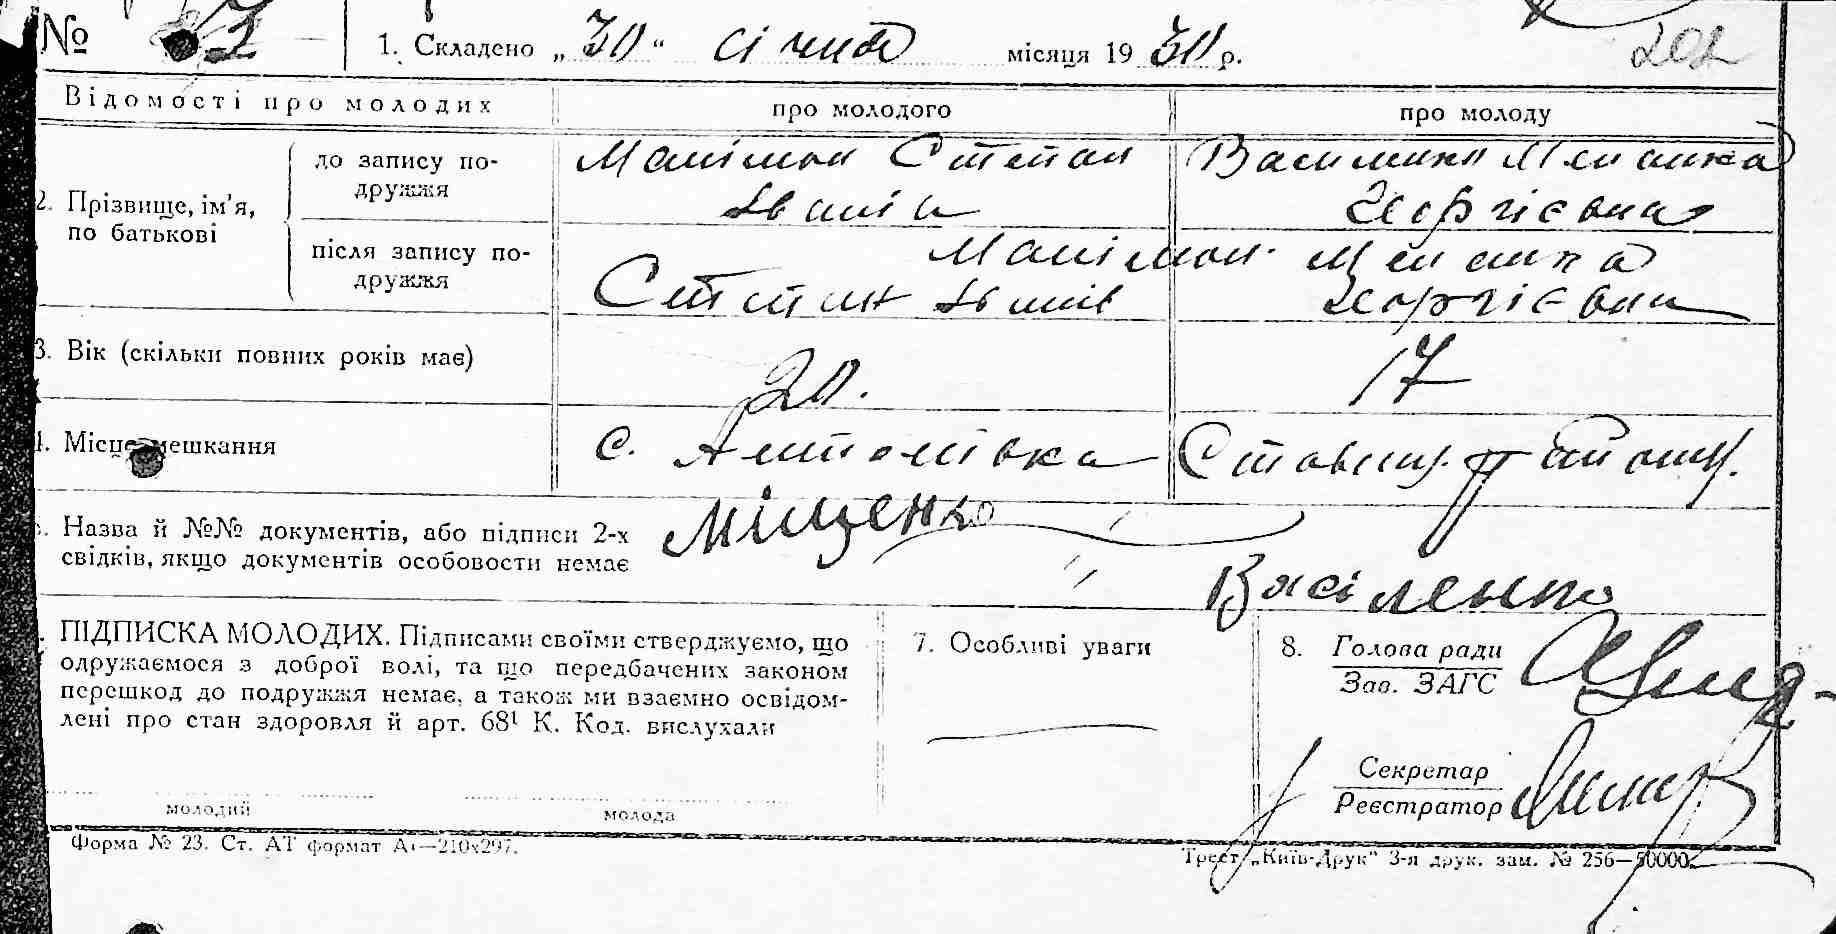 № 7
1. Складено „30" січня місяця 1930 р.
202
Відомості про молодих
про молодого
про молоду
2. Прізвище, ім'я, по батькові
до запису подружжя
Степан
Іванів
Меланка
Георгієвна
після запису подружжя
Меланка
Степан Іванів
Георгієвна
3. Вік (скільки повних років має)
20.
17
4. Місце мешкання
с. Антонівка
Назва й №№ документів, або підписи 2-х
свідків, якщо документів особовости немає
Міщенко
Васіленко
ПІДПИСКА МОЛОДИХ. Підписами своїми стверджуємо, що
одружаємося з доброї волі, та що передбачених законом
перешкод до подружжя немає, а також ми взаємно освідом-
лені про стан здоровля й арт. 68¹ К. Код. вислухали
7. Особливі уваги
8. Голова ради
Зав. ЗАГС
Секретар
Реєстратор
молодий
молода
Форма № 23. Ст. АТ формат А4—210х297.
Трест „Київ-Друк" 3-я друк. зам. № 256—50000.